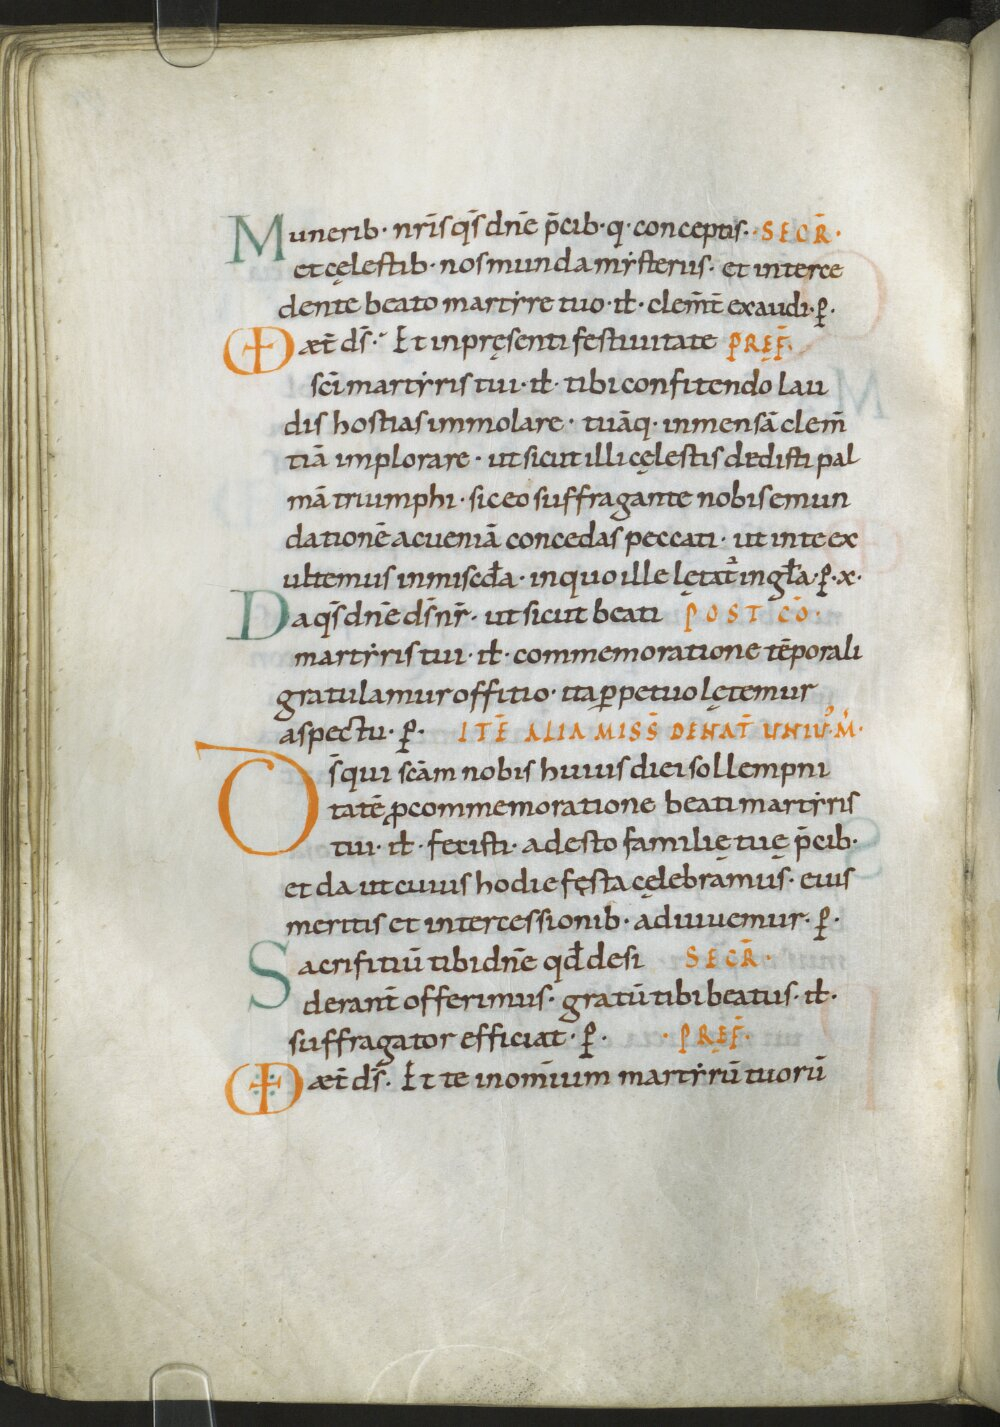 Munerib· nr̄is q̄s dn̄e p̄cib·q· conceptis· SECR̄·
et cęlestib· nos munda mẏsteriis· et interce
dente beato martẏre tuo· ił· clem̄t exaudi· ꝑ·
VD æt̄ ds̄· Et in pręsenti festiuitate PREF̄·
sc̄i martẏris tui· ił· tibi confitendo lau
dis hostias immolare· tuāq· inmensā clem̄
tiā implorare· ut sicut illi cęlestis dedisti pal
mā triumphi· sic eo suffragante nobis emun
dationē ac ueniā concedas peccati· ut in te ex
ultemus in misc̄dia· in quo ille lętat̄ in gła· ꝑ· x·
Da q̄s dn̄e ds̄ nr̄· ut sicut beati POST CŌ·
martẏris tui· ił· commemoratione tēporali
gratulamur offitio· ita ꝑpetuo lętemur
aspectu· ꝑ· ITĒ ALIA MISS̄ DE NAT̄ UNIUꝰ· M̄·
Ds̄ qui sc̄am nobis huius diei sollempni
tatē ꝓ commemoratione beati martẏris
tui· ił· fecisti· adesto familię tuę p̄cib·
et da ut cuius hodie fęsta cęlebramus· eius
meritis et intercessionib· adiuuemur· ꝑ·
Sacrifitiū tibi dn̄e qđ desi SECR̄·
derant̄ offerimus· gratū tibi beatus· ił·
suffragator efficiat· ꝑ· · PREF̄·
VD æt̄ ds̄· Et te in om̄ium martẏrū tuorū